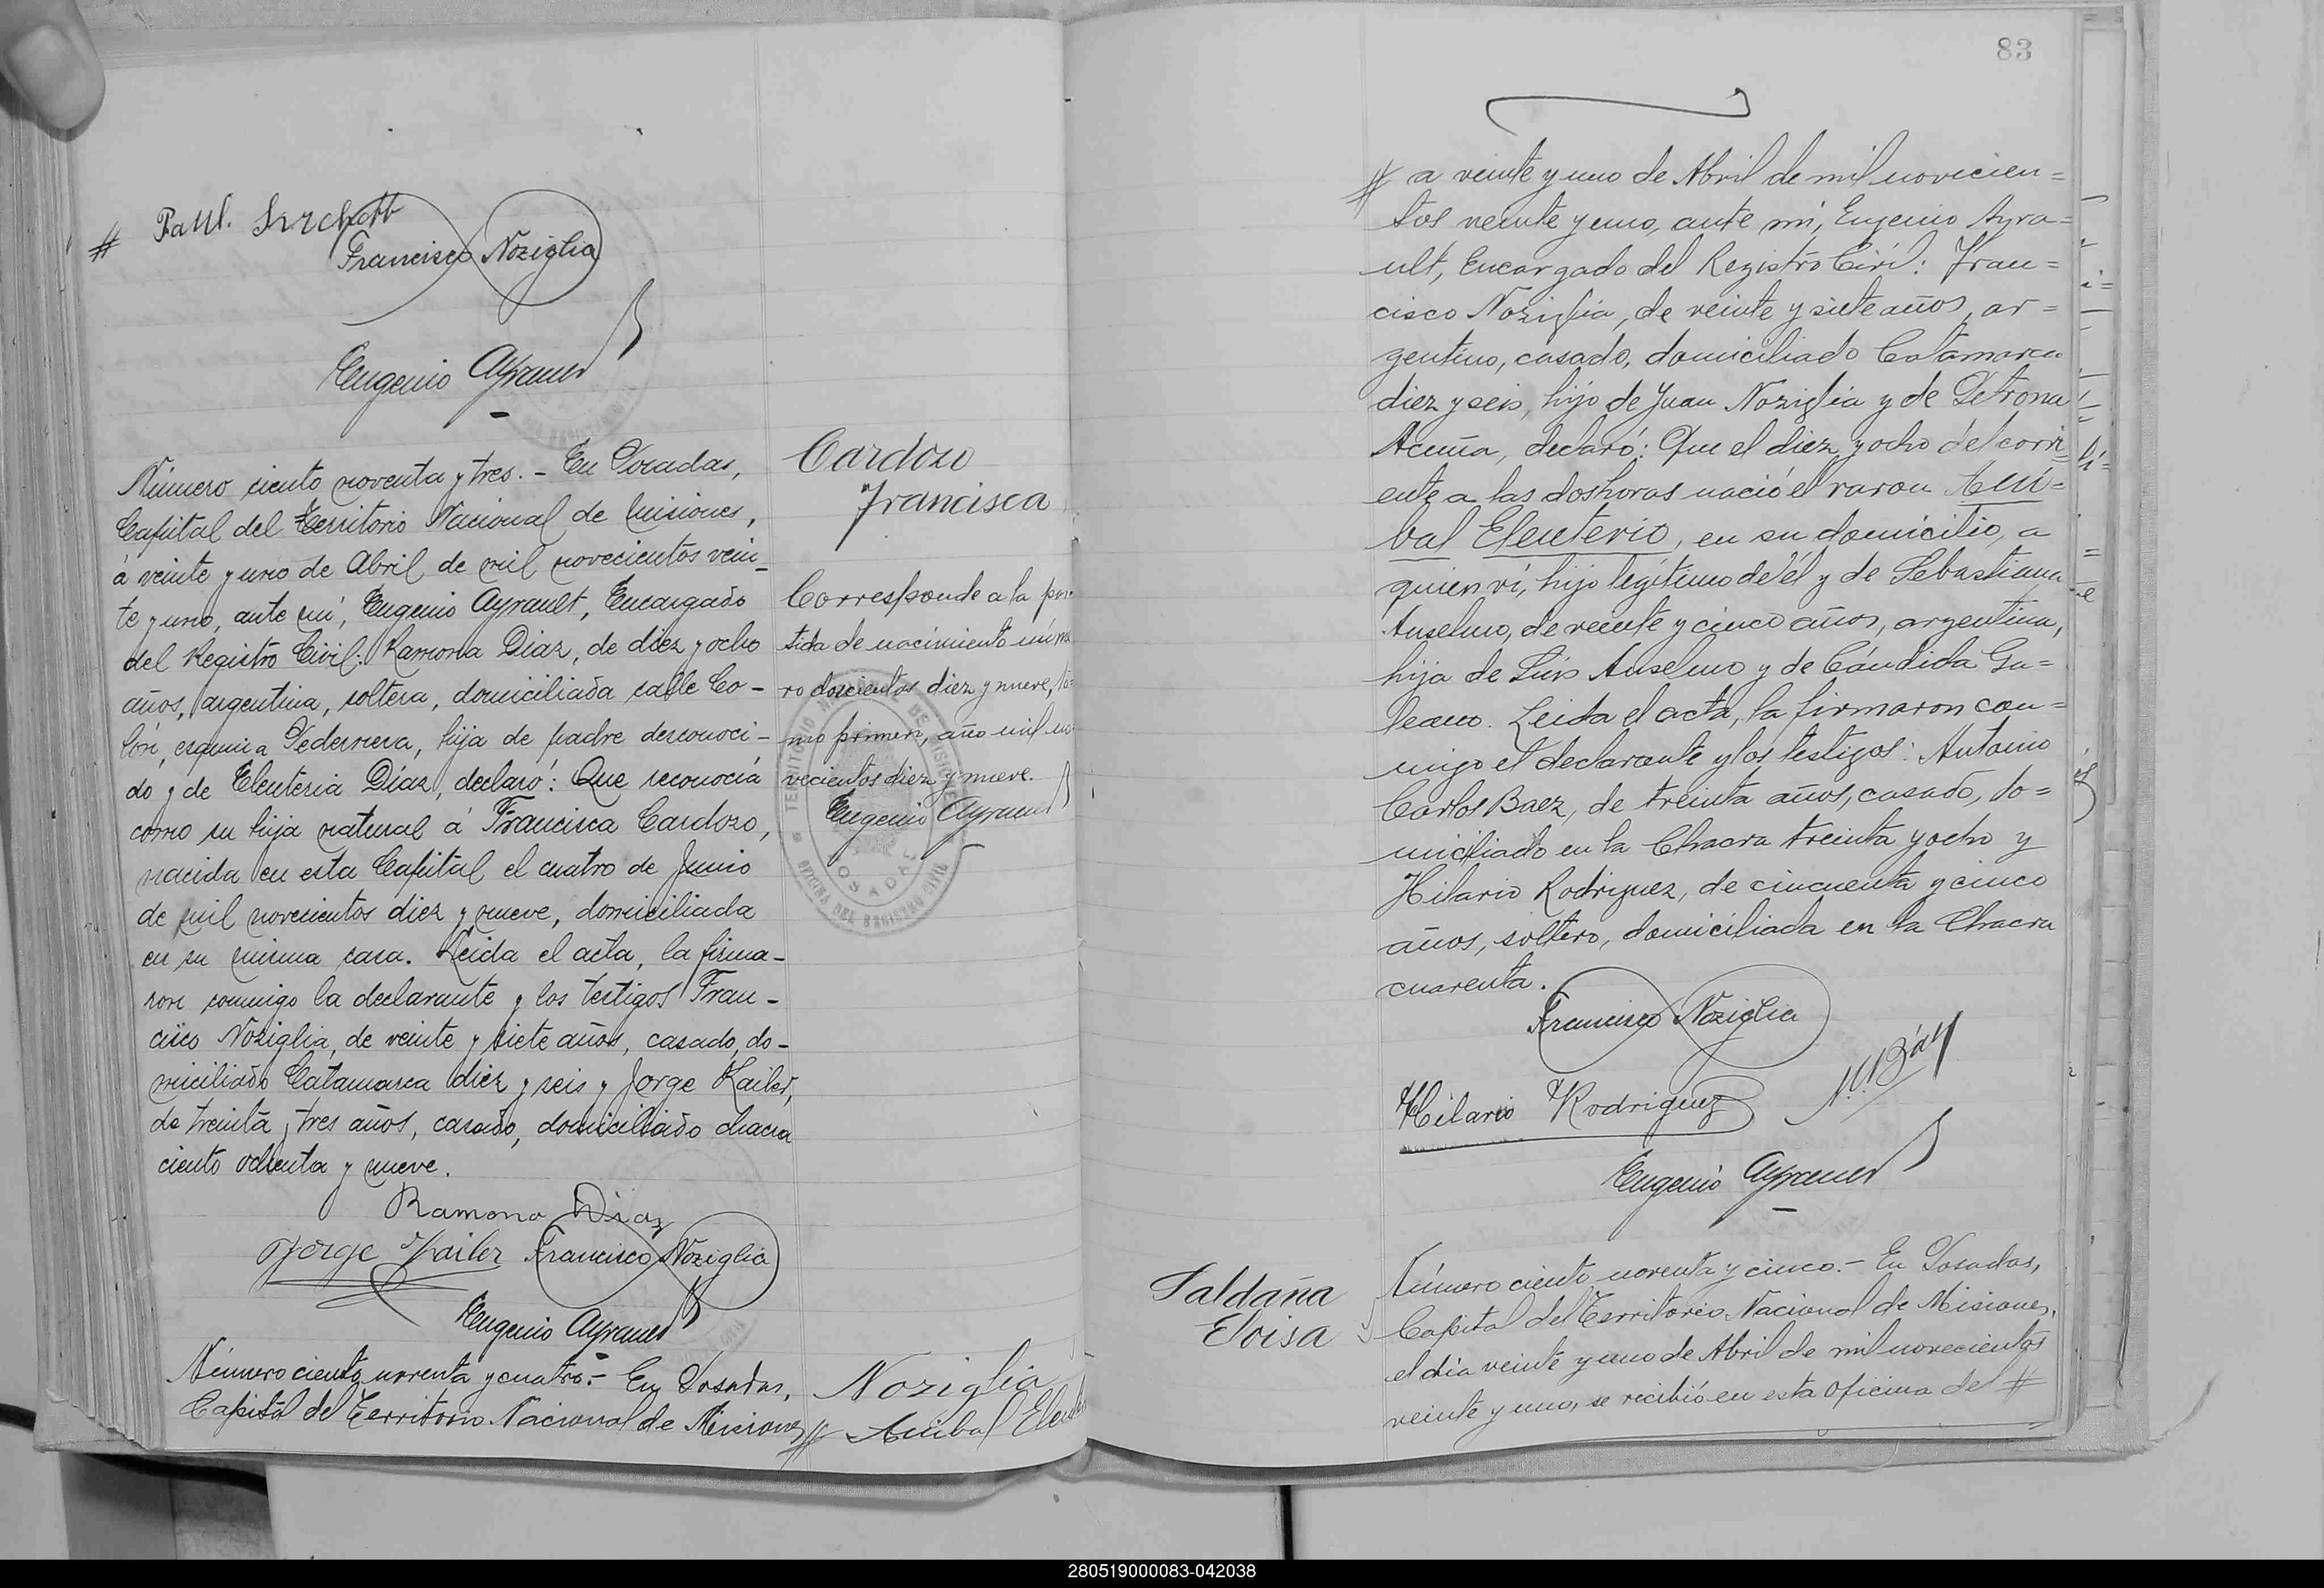 # Paul.
Francisco Noziglia
Eugenio Ayrault
Número ciento noventa y tres. - En Posadas,
Capital del Territorio Nacional de Misiones,
á veinte y uno de Abril de mil novecientos vein-
te y uno, ante mí, Eugenio Ayrault, Encargado
del Registro Civil: Ramona Diaz, de diez y ocho
años, argentina, soltera, domiciliada calle Co-
lón, esquina Pedernera, hija de padre desconoci-
do y de Eleuteria Díaz, declaró: Que reconocía
como su hija natural á Francisca Cardozo,
nacida en esta Capital el cuatro de Junio
de mil novecientos diez y nueve, domiciliada
en su misma casa. Leida el acta, la firma-
ron conmigo la declarante y los testigos Fran-
cisco Noziglia, de veinte y siete años, casado, do-
miciliado Catamarca diez y seis y Jorge Kailer,
de treinta y tres años, casado, domiciliado chacra
ciento ochenta y nueve.
Ramona Diaz
Jorge Kailer Francisco Noziglia
Eugenio Ayrault
Número ciento noventa y cuatro.- En Posadas,
Capital del Territorio Nacional de Misiones #
Cardozo
Francisca
Corresponde a la par
tida de nacimiento núme
ro doscientos diez y nueve, to=
mo primero, año mil no
vecientos diez y nueve.
Eugenio Ayrault
TERRITORIO NACIONAL DE MISIONES
POSADAS
OFICINA DEL REGISTRO CIVIL
Noziglia
Anibal Eleuter
83
# a veinte y uno de Abril de mil novicien=
tos veinte y uno, ante mí, Eugenio Ayra=
ult, Encargado del Registro Civil: Fran=
cisco Noziglia, de veinte y siete años, ar=
gentino, casado, domiciliado Catamarca
diez y seis, hijo de Juan Noziglia y de Petrona
Acuña, declaró: Que el diez y ocho del corri=
ente a las dos horas nació el varon Aní=
bal Eleuterio, en su domicilio, a
quien ví, hijo legítimo de él y de Sebastiana
Anselmo, de veinte y cinco años, argentina,
hija de Luis Anselmo y de Cándida Ga=
leano. Leida el acta, la firmaron con=
migo el declarante y los testigos: Antonio
Carlos Baez, de treinta años, casado, do=
miciliado en la Chacra treinta y ocho y
Hilario Rodriguez, de cincuenta y cinco
años, soltero, domiciliada en la Chacra
cuarenta.
Francisco Noziglia
Báez
Hilario Rodriguez
Eugenio Ayrault
Saldaña
Eloisa
Número ciento noventa y cinco.- En Posadas,
Capital del Territorio Nacional de Misiones,
el día veinte y uno de Abril de mil novecientos
veinte y uno, se recibió en esta Oficina del #
280519000083-042038